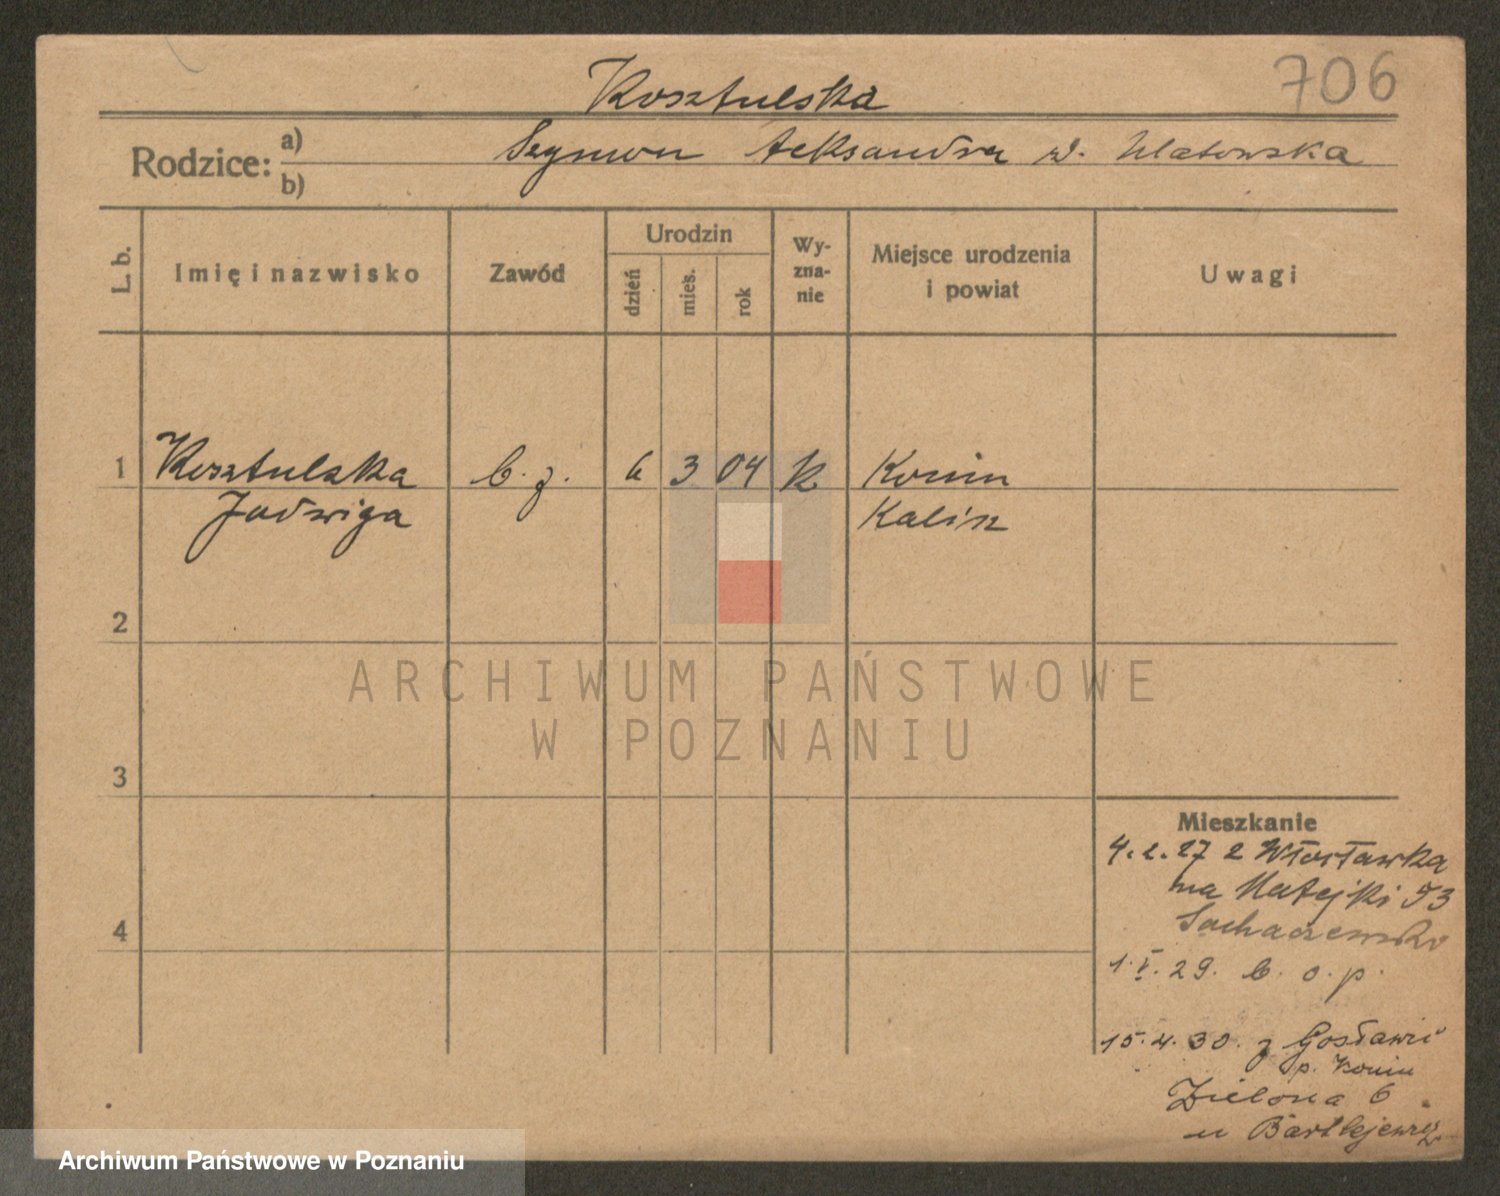 706
Kosztulska
Rodzice: a) Szymon Aleksandra z d. Ulatowska
b)
L. b. Imię i nazwisko Zawód Urodzin dzień mies. rok Wy-zna-nie Miejsce urodzenia i powiat Uwagi
1 Kosztulska b. z. 6 3 04 k Konin
Jadwiga Kalisz
2
3
4
Mieszkanie
4.2.27 z Włocławka
na Matejki 53
Sochaczewsko
1.V.29. b. o. p.
15.4.30. z Gosławic
p. Konin
Zielona 6
u Bartlejewicz
ARCHIWUM PAŃSTWOWE
W POZNANIU
Archiwum Państwowe w Poznaniu